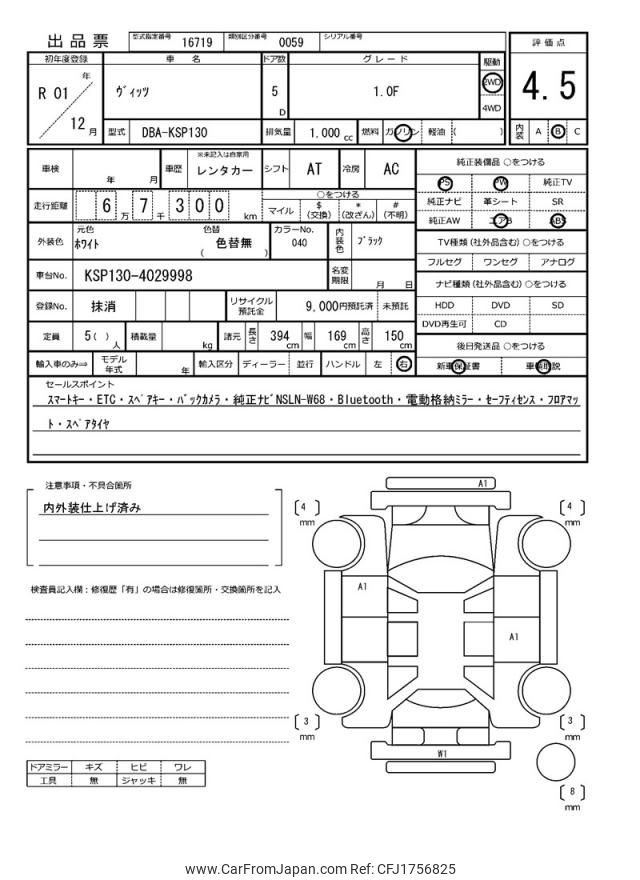 出品票 型式指定番号 16719 類別区分番号 0059 シリアル番号
評価点
4.5
内装 A B C
初年度登録 車名 ドア数 グレード 駆動
R 01 年 ヴィッツ 5 D 1.0F 2WD
4WD
12 月 型式 DBA-KSP130 排気量 1,000 cc 燃料 ガソリン 軽油 ( )
車検 年 月 車歴 ※未記入は自家用 レンタカー シフト AT 冷房 AC
走行距離 6 万 7 千 3 0 0 km ○をつける
マイル $(交換) *(改ざん) #(不明)
外装色 元色 ホワイト 色替 色替無 ( ) カラーNo. 040 内装色 ブラック
車台No. KSP130-4029998 名変期限 月 日
登録No. 抹消 リサイクル預託金 9,000円預託済 未預託
定員 5( )人 積載量 kg 諸元 長さ 394 cm 幅 169 cm 高さ 150 cm
輸入車のみ⇒ モデル年式 年 輸入区分 ディーラー 並行 ハンドル 左 右
純正装備品 ○をつける
PS PW 純正TV
純正ナビ 革シート SR
純正AW エアB ABS
TV種類(社外品含む)○をつける
フルセグ ワンセグ アナログ
ナビ種類(社外品含む)○をつける
HDD DVD SD
DVD再生可 CD
後日発送品 ○をつける
新車保証書 車輌取説
セールスポイント
スマートキー・ETC・スペアキー・バックカメラ・純正ナビNSLN-W68・Bluetooth・電動格納ミラー・セーフティセンス・フロアマッ
ト・スペアタイヤ
注意事項・不具合箇所
内外装仕上げ済み
検査員記入欄：修復歴「有」の場合は修復箇所・交換箇所を記入
A1
4 mm
4 mm
A1
A1
3 mm
3 mm
W1
8 mm
ドアミラー キズ ヒビ ワレ
工具 無 ジャッキ 無
www.CarFromJapan.com Ref: CFJ1756825